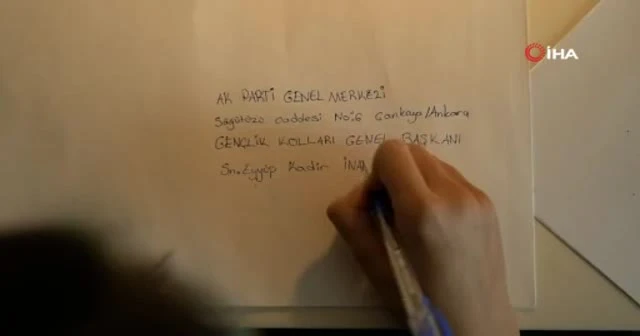 İHA
AK PARTİ GENEL MERKEZİ
Söğütözü caddesi No:6 Çankaya/Ankara
GENÇLİK KOLLARI GENEL BAŞKANI
Sn. Eyyüp Kadir İNAN